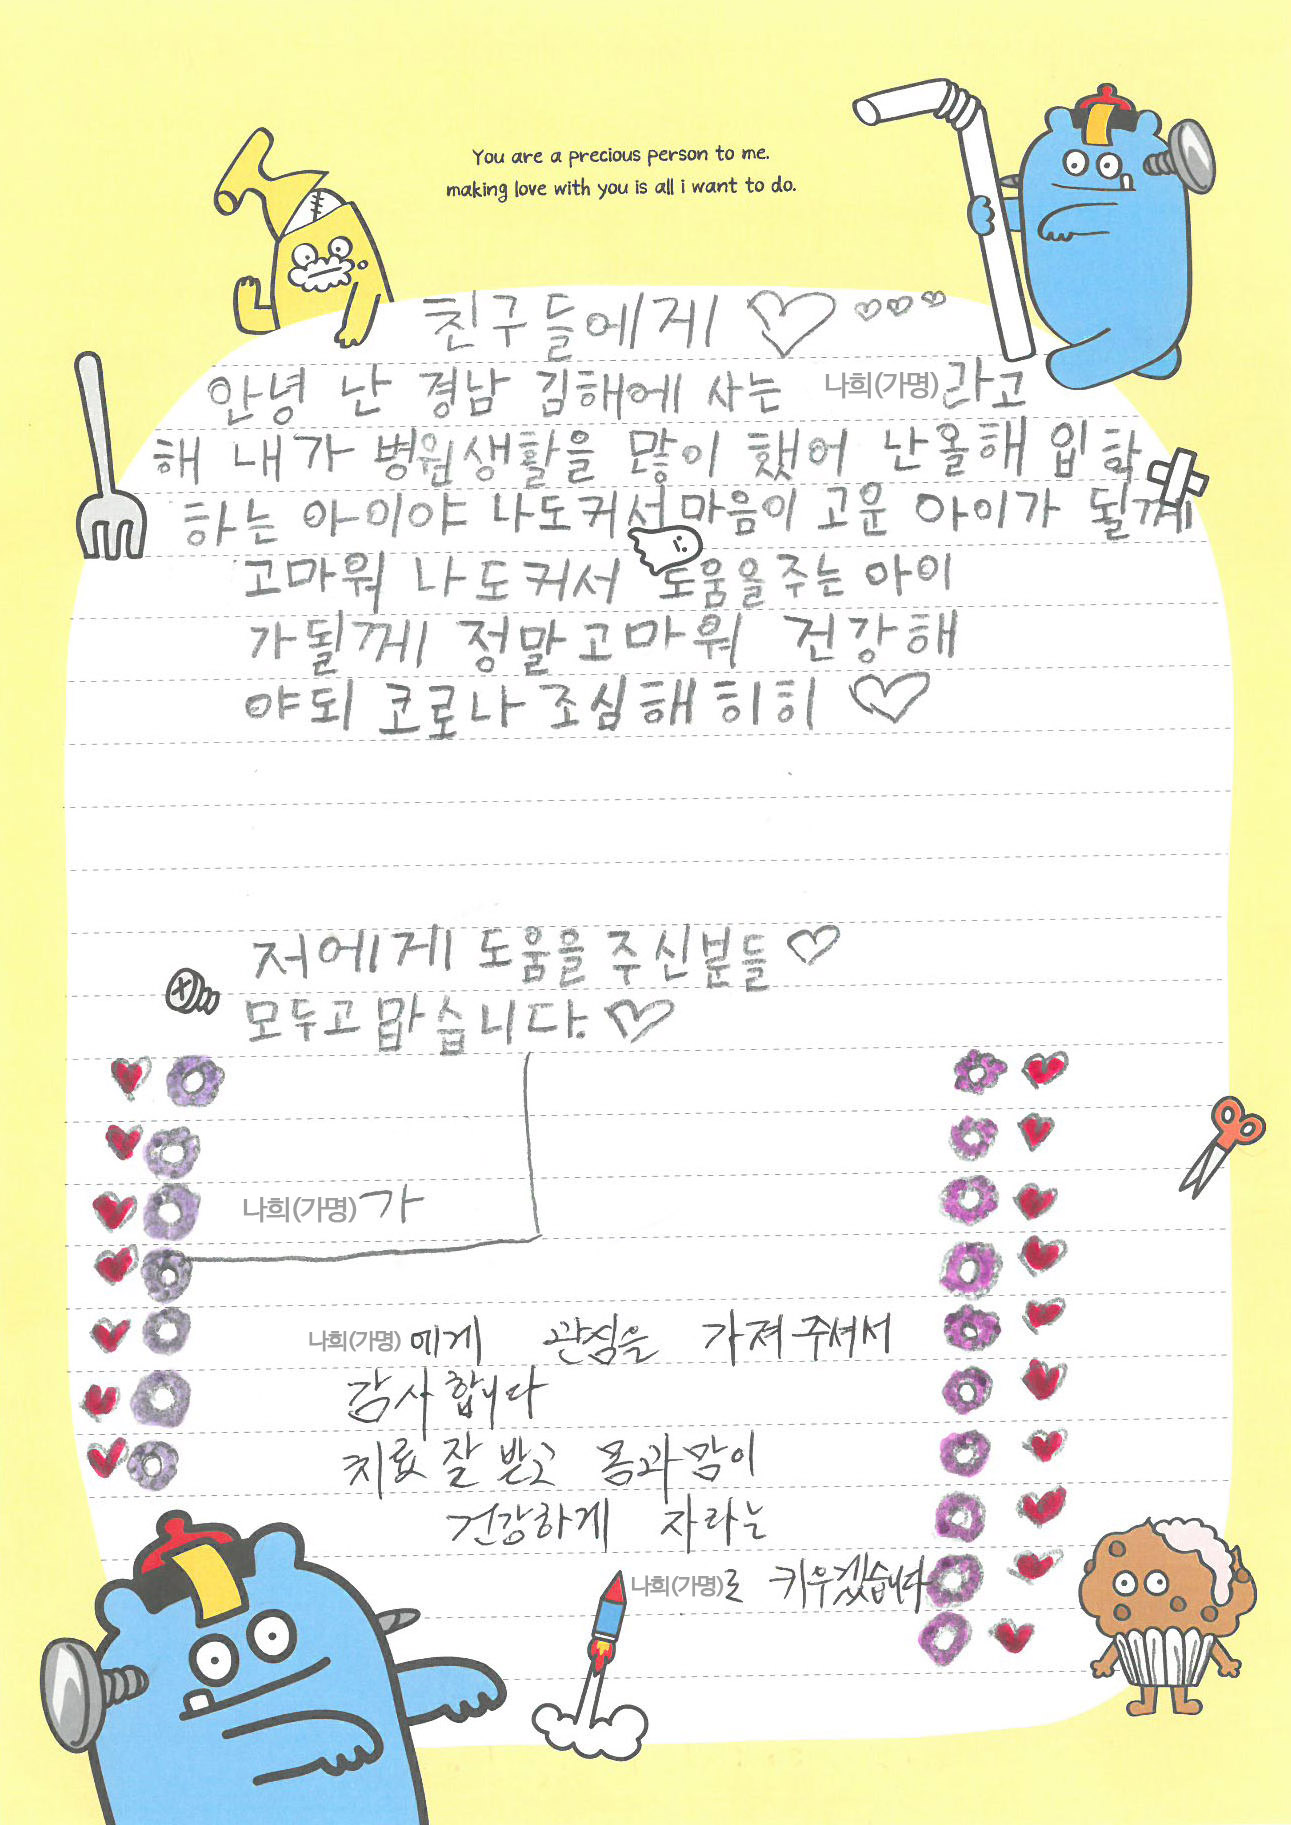 You are a precious person to me.
making love with you is all i want to do.
친구들에게
안녕 난 경남 김해에 사는 나희(가명)라고
해 내가 병원생활을 많이 했어 난올해 입학
하는 아이야 나도커서마음이 고운 아이가 될께
고마워 나도커서 도움을주는 아이
가될께 정말고마워 건강해
야되 코로나조심해 히히
저에게 도움을 주신분들
모두고맙습니다.
나희(가명)가
나희(가명)에게 관심을 가져주셔서
감사합니다
치료 잘 받고 몸과맘이
건강하게 자라는
나희(가명)로 키우겠습니다